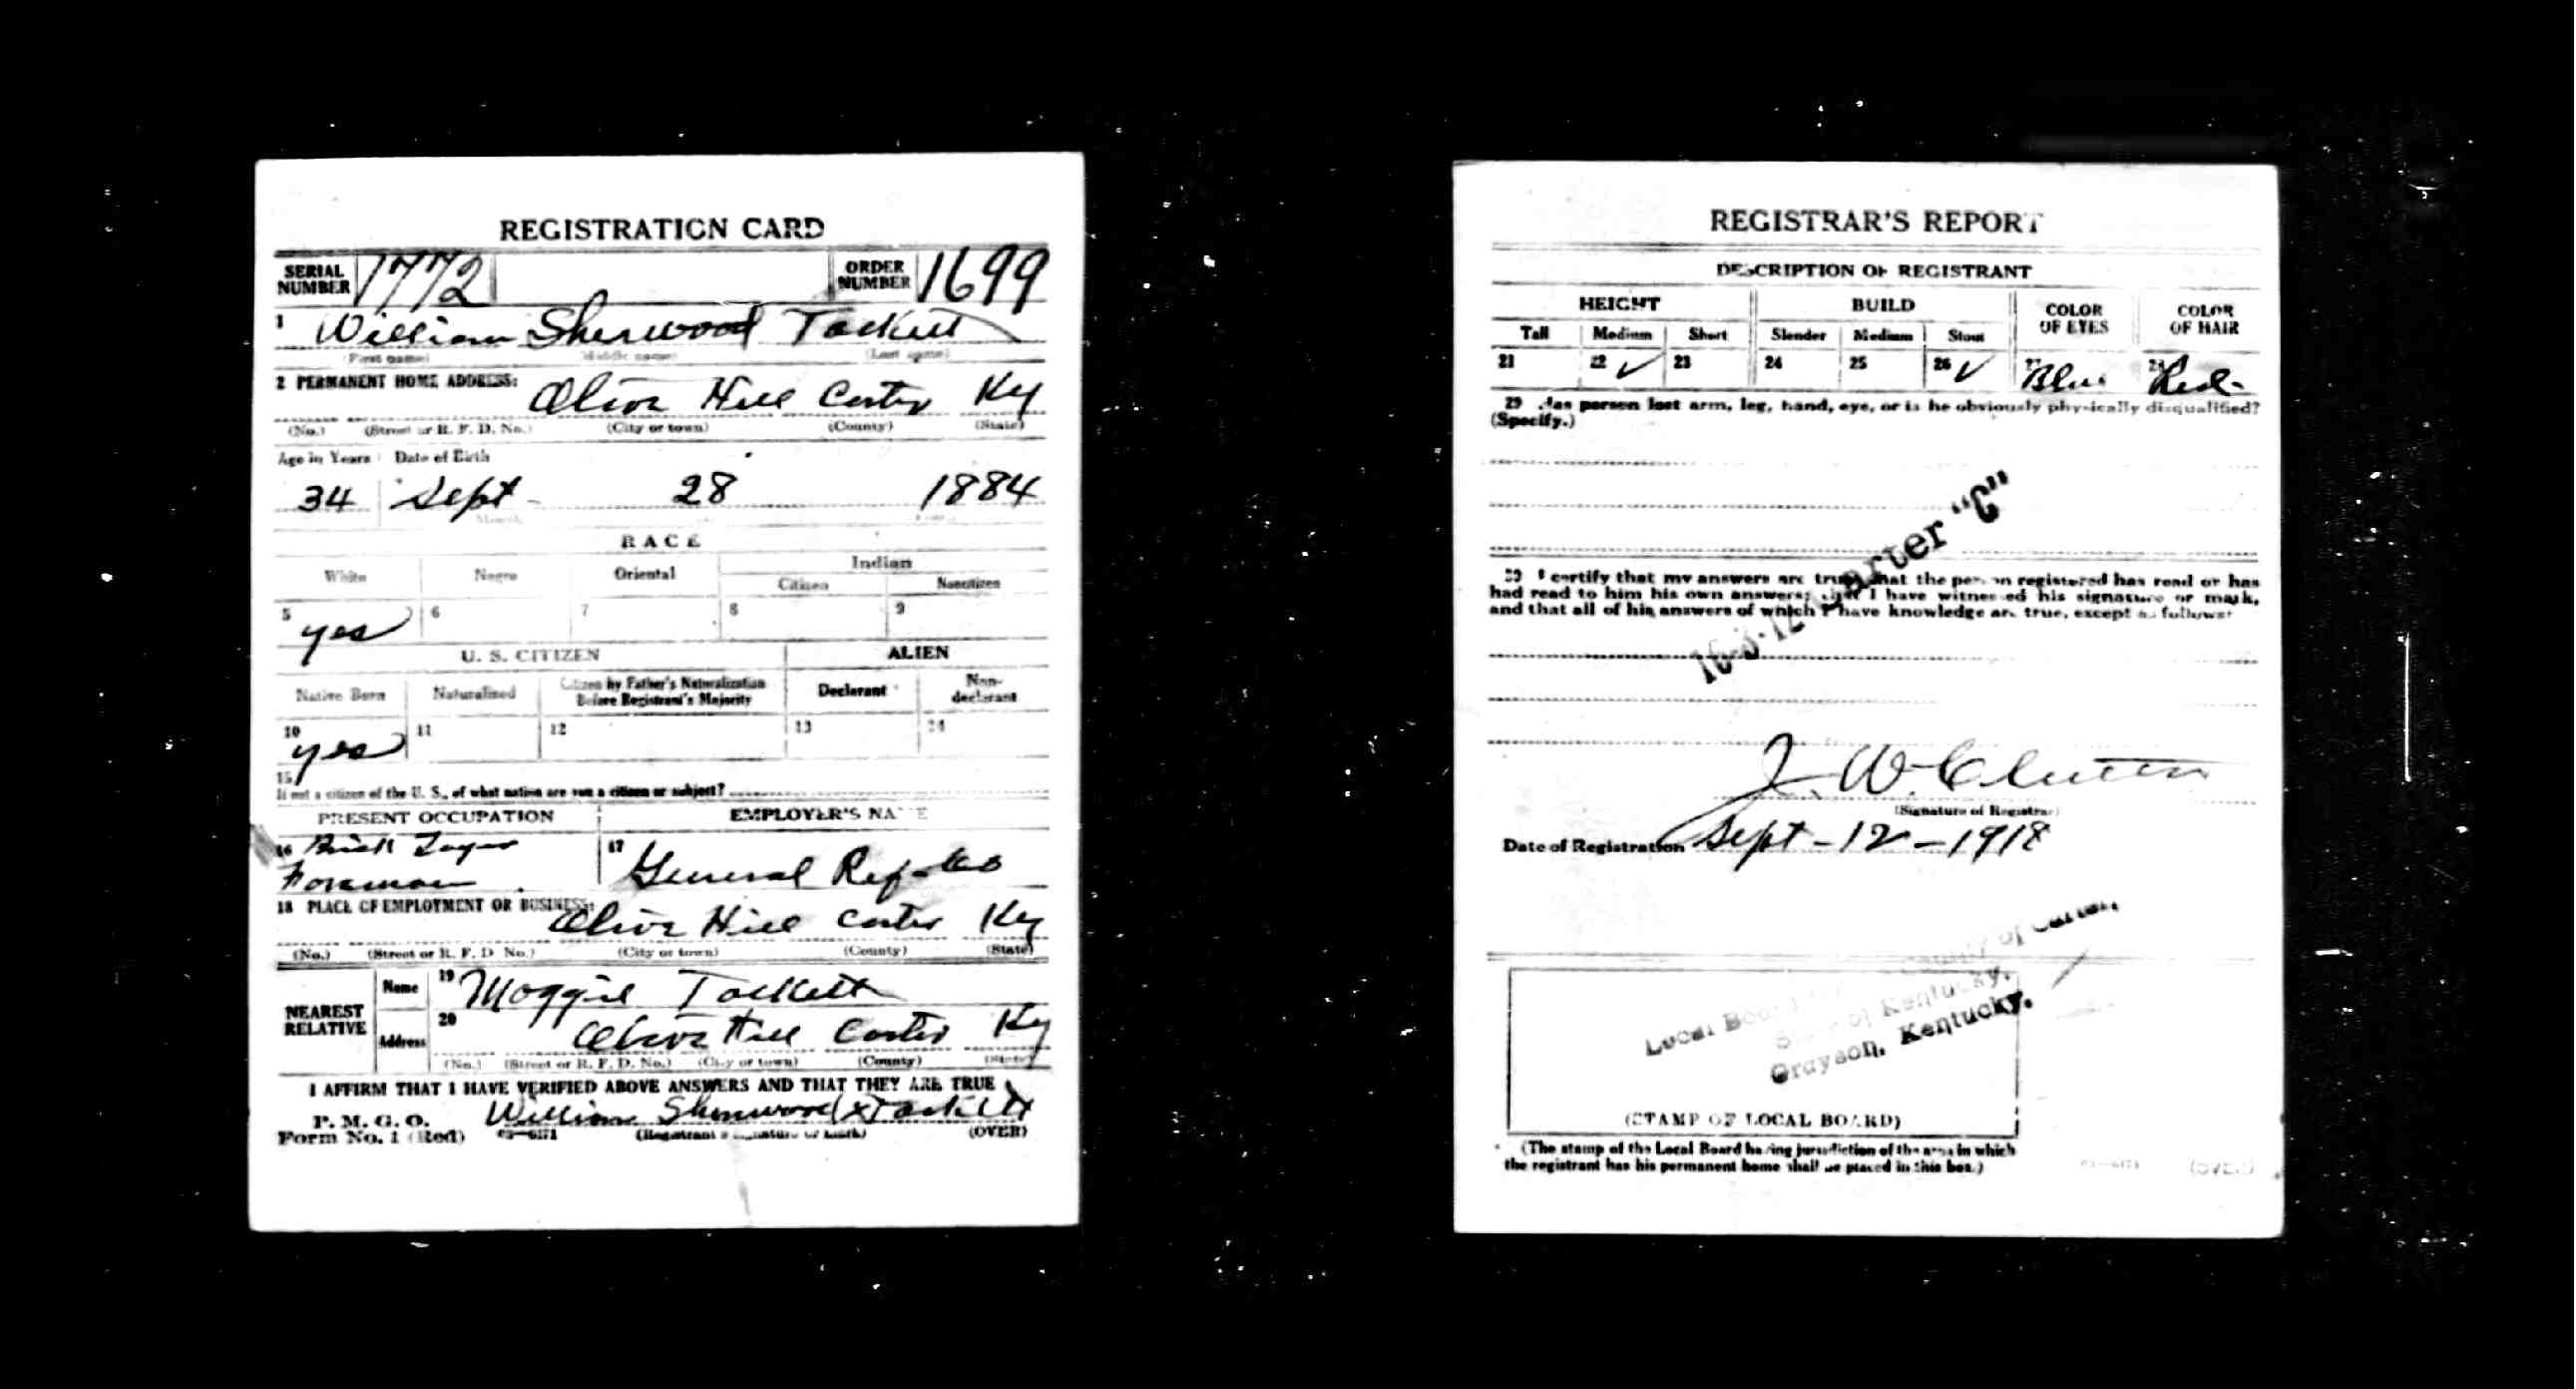 REGISTRATION CARD
SERIAL NUMBER 1772 ORDER NUMBER 1699
1 William Sherwood Tackett
(First name) (Middle name) (Last name)
2 PERMANENT HOME ADDRESS:
Olive Hill Carter Ky
(No.) (Street or R. F. D. No.) (City or town) (County) (State)
Age in Years Date of Birth
34 Sept 28 1884
Month
RACE
White Negro Oriental Indian
Citizen Noncitizen
5 yes 6 7 8 9
U. S. CITIZEN ALIEN
Native Born Naturalized Citizen by Father's Naturalization Before Registrant's Majority Declarant Non-declarant
10 yes 11 12 13 14
15
If not a citizen of the U. S., of what nation are you a citizen or subject?
PRESENT OCCUPATION EMPLOYER'S NAME
16 Brick Layer Foreman 17 General Ref. Co
18 PLACE OF EMPLOYMENT OR BUSINESS:
Olive Hill Carter Ky
(No.) (Street or R. F. D. No.) (City or town) (County) (State)
NEAREST RELATIVE
Name 19 Maggie Tackett
Address 20 Olive Hill Carter Ky
(No.) (Street or R. F. D. No.) (City or town) (County) (State)
I AFFIRM THAT I HAVE VERIFIED ABOVE ANSWERS AND THAT THEY ARE TRUE
P. M. G. O.
Form No. 1 (Red) William Sherwood (X) Tackett
03—6171 (Registrant's signature or mark) (OVER)
REGISTRAR'S REPORT
DESCRIPTION OF REGISTRANT
HEIGHT BUILD COLOR OF EYES COLOR OF HAIR
Tall Medium Short Slender Medium Stout
21 22 ✓ 23 24 25 26 ✓ 27 Blue 28 Red
29 Has person lost arm, leg, hand, eye, or is he obviously physically disqualified?
(Specify.)
16-3-12 Carter "C"
30 I certify that my answers are true; that the person registered has read or has
had read to him his own answers; that I have witnessed his signature or mark,
and that all of his answers of which I have knowledge are true, except as follows:
J. W. 
(Signature of Registrar)
Date of Registration Sept - 12 - 1918
Local Board for County of Carter,
State of Kentucky.
Grayson, Kentucky.
(STAMP OF LOCAL BOARD)
(The stamp of the Local Board having jurisdiction of the area in which
the registrant has his permanent home shall be placed in this box.)
03—6171 (OVER)